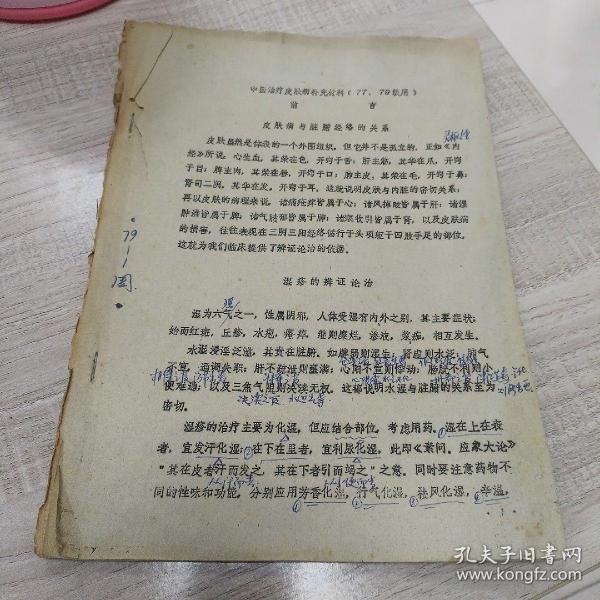 中医治疗皮肤病补充材料(77、79级用)
前 言
皮肤病与脏腑经络的关系
皮肤虽然是体表的一个外围组织,但它并不是孤立的,正如《内
经》所说,心生血,其荣在色,开窍于舌;肝主筋,其华在爪,开窍
于目;脾主肉,其荣在唇,开窍于口;肺主皮,其荣在毛,开窍于鼻;
肾司二阴,其华在发,开窍于耳。这就说明皮肤与内脏的密切关系;
再以皮肤的病理来说,诸痛疮痒皆属于心;诸风掉眩皆属于肝;诸湿
肿满皆属于脾;诸气膹郁皆属于肺;诸寒收引皆属于肾,以及皮肤病
的损害,往往表现在三阴三阳经络循行于头项躯干四肢手足的部位。
这就为我们临床提供了辨证论治的依据。
79
湿疹的辨证论治
湿
湿为六气之一,性属阴邪,人体受湿有内外之别,其主要症状:
始而红斑,丘疹,水疱,瘙痒,继则糜烂,渗液,浆痂,相互发生。
水湿浸淫泛滥,其责在脏腑。如脾弱则湿生;肾虚则水泛;肺气
不宣,通调失职;肝不舒泄则壅满;心阳不宣则悸动;膀胱不利则小
便难通;以及三焦气阻则决渎无权。这都说明水湿与脏腑的关系至为
密切。
湿疹的治疗主要为化湿,但应结合部位,考虑用药。湿在上在表
者,宜发汗化湿;在下在里者,宜利尿化湿,此即《素问、应象大论》
"其在皮者汗而发之,其在下者引而竭之"之意。同时要注意药物不
同的性味和功能,分别应用芳香化湿,行气化湿,祛风化湿,辛温,
孔夫子旧书网
www.kongfz.com